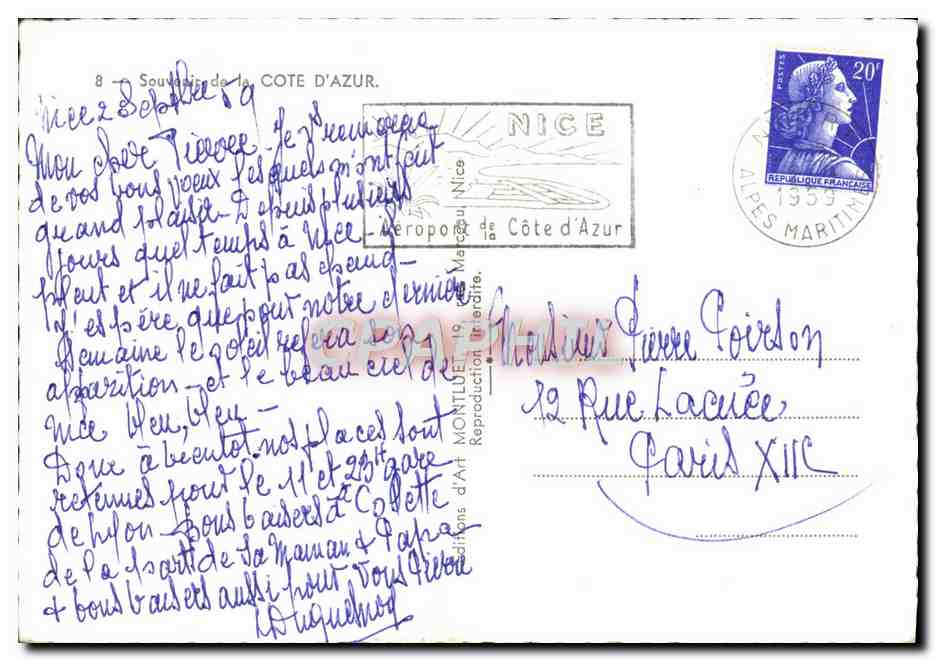 8 — Souvenir de la COTE D'AZUR.
Nice 2 Septbre 59
Mon cher Pierre - Je vous
de vos bons voeux lesquels m'ont fait
grand plaisir - Depuis plusieurs
jours quel temps à Nice - il
pleut et il ne fait pas chaud -
J'espère que pour notre dernière
semaine le soleil refera son
apparition - et le beau ciel de
Nice bleu, bleu -
Donc à bientôt. nos places sont
retenues pour le 11 et 23h gare
de Lyon - bons baisers à Colette
de la part de sa Maman & Papa -
& bons baisers aussi pour vous Pierre
LDuquesnoy
Editions d'Art MONTLUET, 19, rue Marceau, Nice
Reproduction interdite.
NICE
Aéroport de la Côte d'Azur
POSTES
20F
REPUBLIQUE FRANÇAISE
1959
ALPES MARITIMES
CPAPHIL
Monsieur Pierre Poirson
12 Rue Lacuée
Paris XIIe